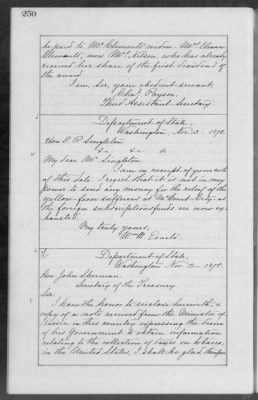 250
be paid to Mr. Clements' widow. Mrs. Eleanor
Clements, now Mrs. Nelson, who has already
received her share of the first dividend of
the award.
I am, Sir, your obedient servant,
Chas. Payson,
Third Assistant Secretary
Department of State,
Washington, Nov. 13 - 1878.
Hon O. R. Singleton
&c &c
My dear Mr. Singleton,
I am in receipt of your note
of this date. I regret that it is not in my
power to send any money for the relief of the
yellow-fever sufferers at as
the foreign subscription funds are now ex-
hausted.
Very truly yours,
Wm. M. Evarts.
Department of State,
Washington Nov. 13 - 1878.
Hon. John Sherman,
Secretary of the Treasury
Sir,
I have the honor to enclose herewith, a
copy of a note received from the Minister of
Russia in this country expressing the desire
of his Government to obtain information
relating to the collection of taxes on tobacco,
in the United States. I shall be glad therefore